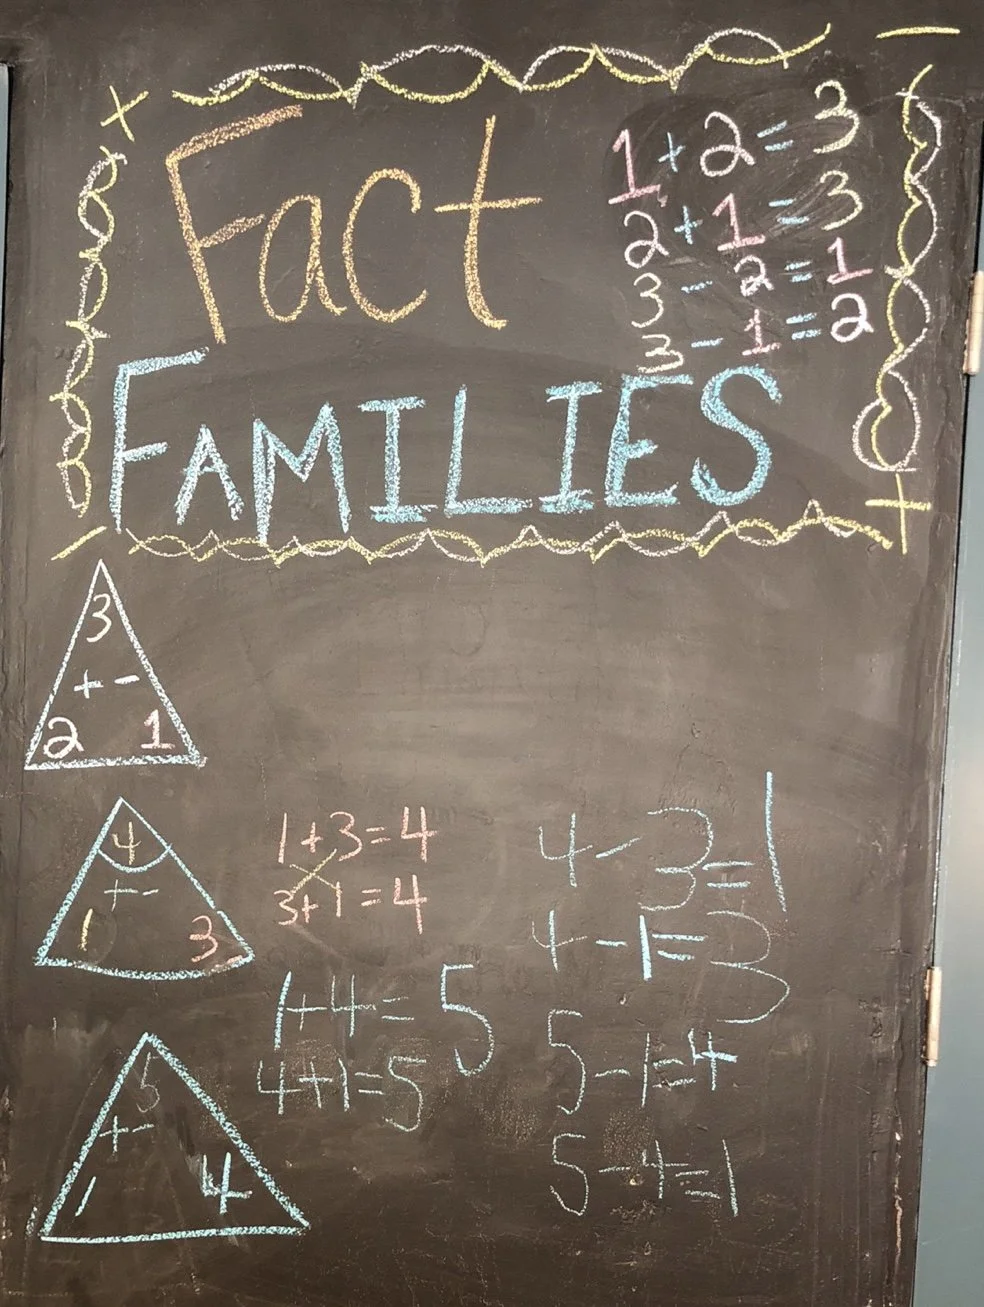 Fact
FAMILIES
1 + 2 = 3
2 + 1 = 3
3 - 2 = 1
3 - 1 = 2
3
+ -
2 1
4
+ -
1 3
1+3=4
3+1=4
4-3=1
4-1=3
5
+ -
1 4
1+4=5
4+1=5
5-1=4
5-4=1